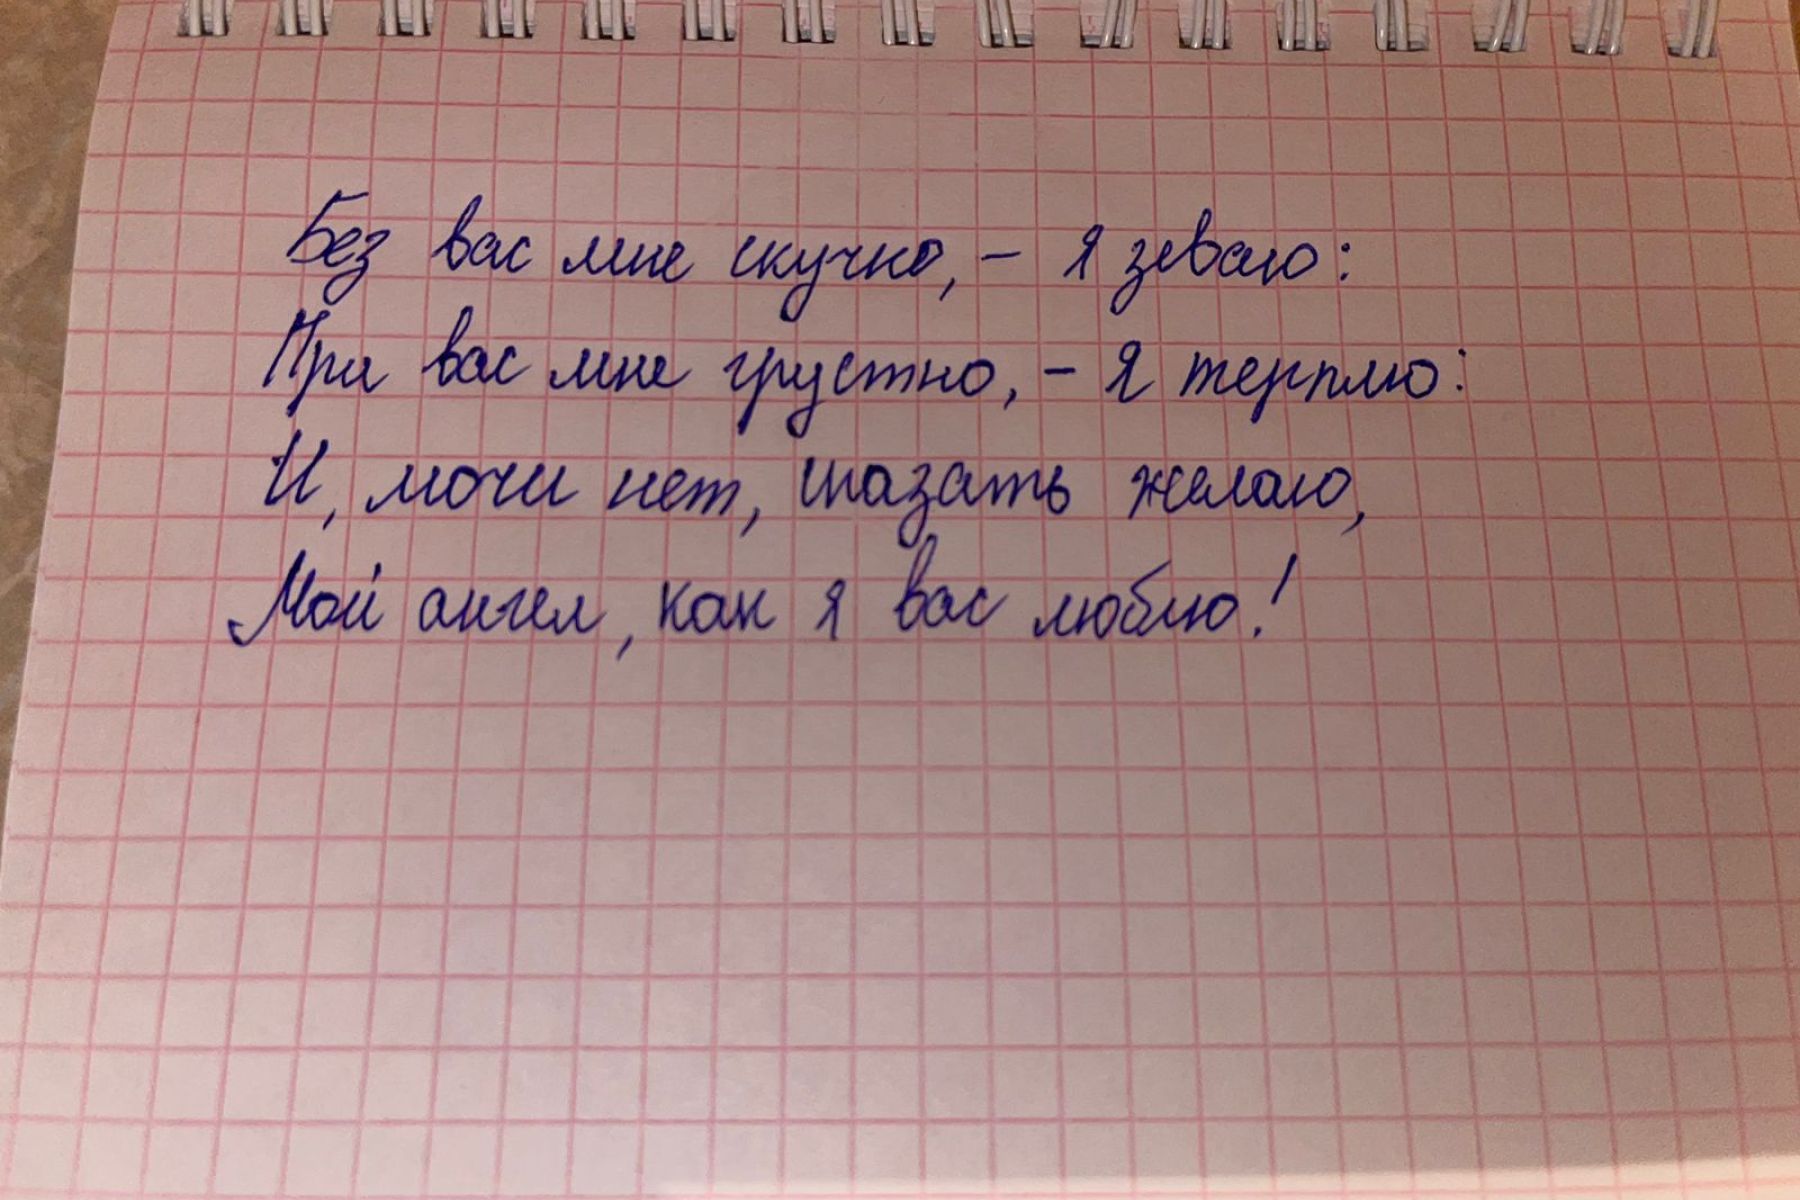 Без вас мне скучно, - я зеваю:
При вас мне грустно, - я терплю:
И, мочи нет, сказать желаю,
Мой ангел, как я вас люблю!